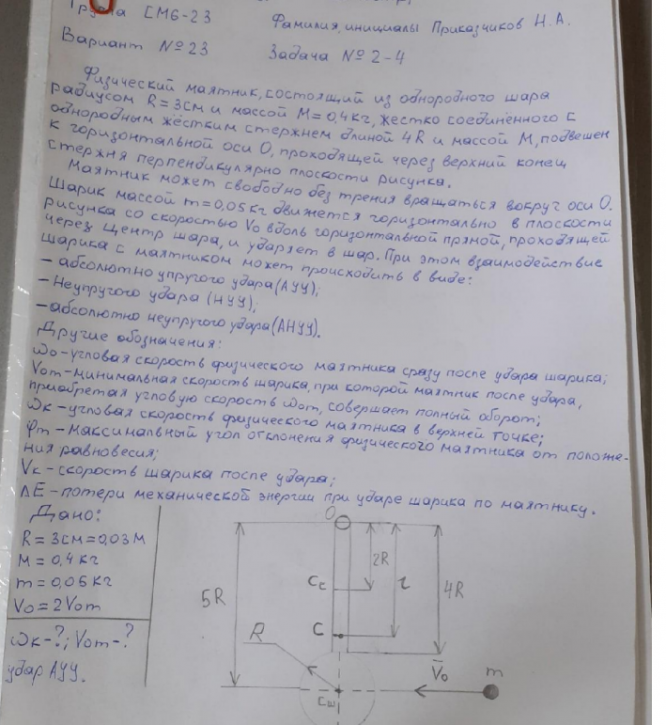 Группа СМ6-23 Фамилия, инициалы Приказчиков Н.А.
Вариант №23 Задача №2-4
Физический маятник, состоящий из однородного шара
радиусом R=3см и массой M=0,4кг, жестко соединённого с
однородным жёстким стержнем длиной 4R и массой M, подвешен
к горизонтальной оси O, проходящей через верхний конец
стержня перпендикулярно плоскости рисунка.
Маятник может свободно без трения вращаться вокруг оси O.
Шарик массой m=0,05кг движется горизонтально в плоскости
рисунка со скоростью V₀ вдоль горизонтальной прямой, проходящей
через центр шара, и ударяет в шар. При этом взаимодействие
шарика с маятником может происходить в виде:
- абсолютно упругого удара(АУУ);
- Неупругого удара (НУУ);
- абсолютно неупругого удара(АНУУ).
Другие обозначения:
ω₀-угловая скорость физического маятника сразу после удара шарика;
V₀m-минимальная скорость шарика, при которой маятник после удара,
приобретая угловую скорость ω₀m, совершает полный оборот;
ωк-угловая скорость физического маятника в верхней точке;
φm-максимальный угол отклонения физического маятника от положе-
ния равновесия;
Vк-скорость шарика после удара;
ΔE-потери механической энергии при ударе шарика по маятнику.
Дано:
R=3см=0,03м
M=0,4кг
m=0,05кг
V₀=2V₀m
ωк-?; V₀m-?
удар АУУ.
O
2R
Cс
l
5R
4R
C
R
V̄₀
m
Cш